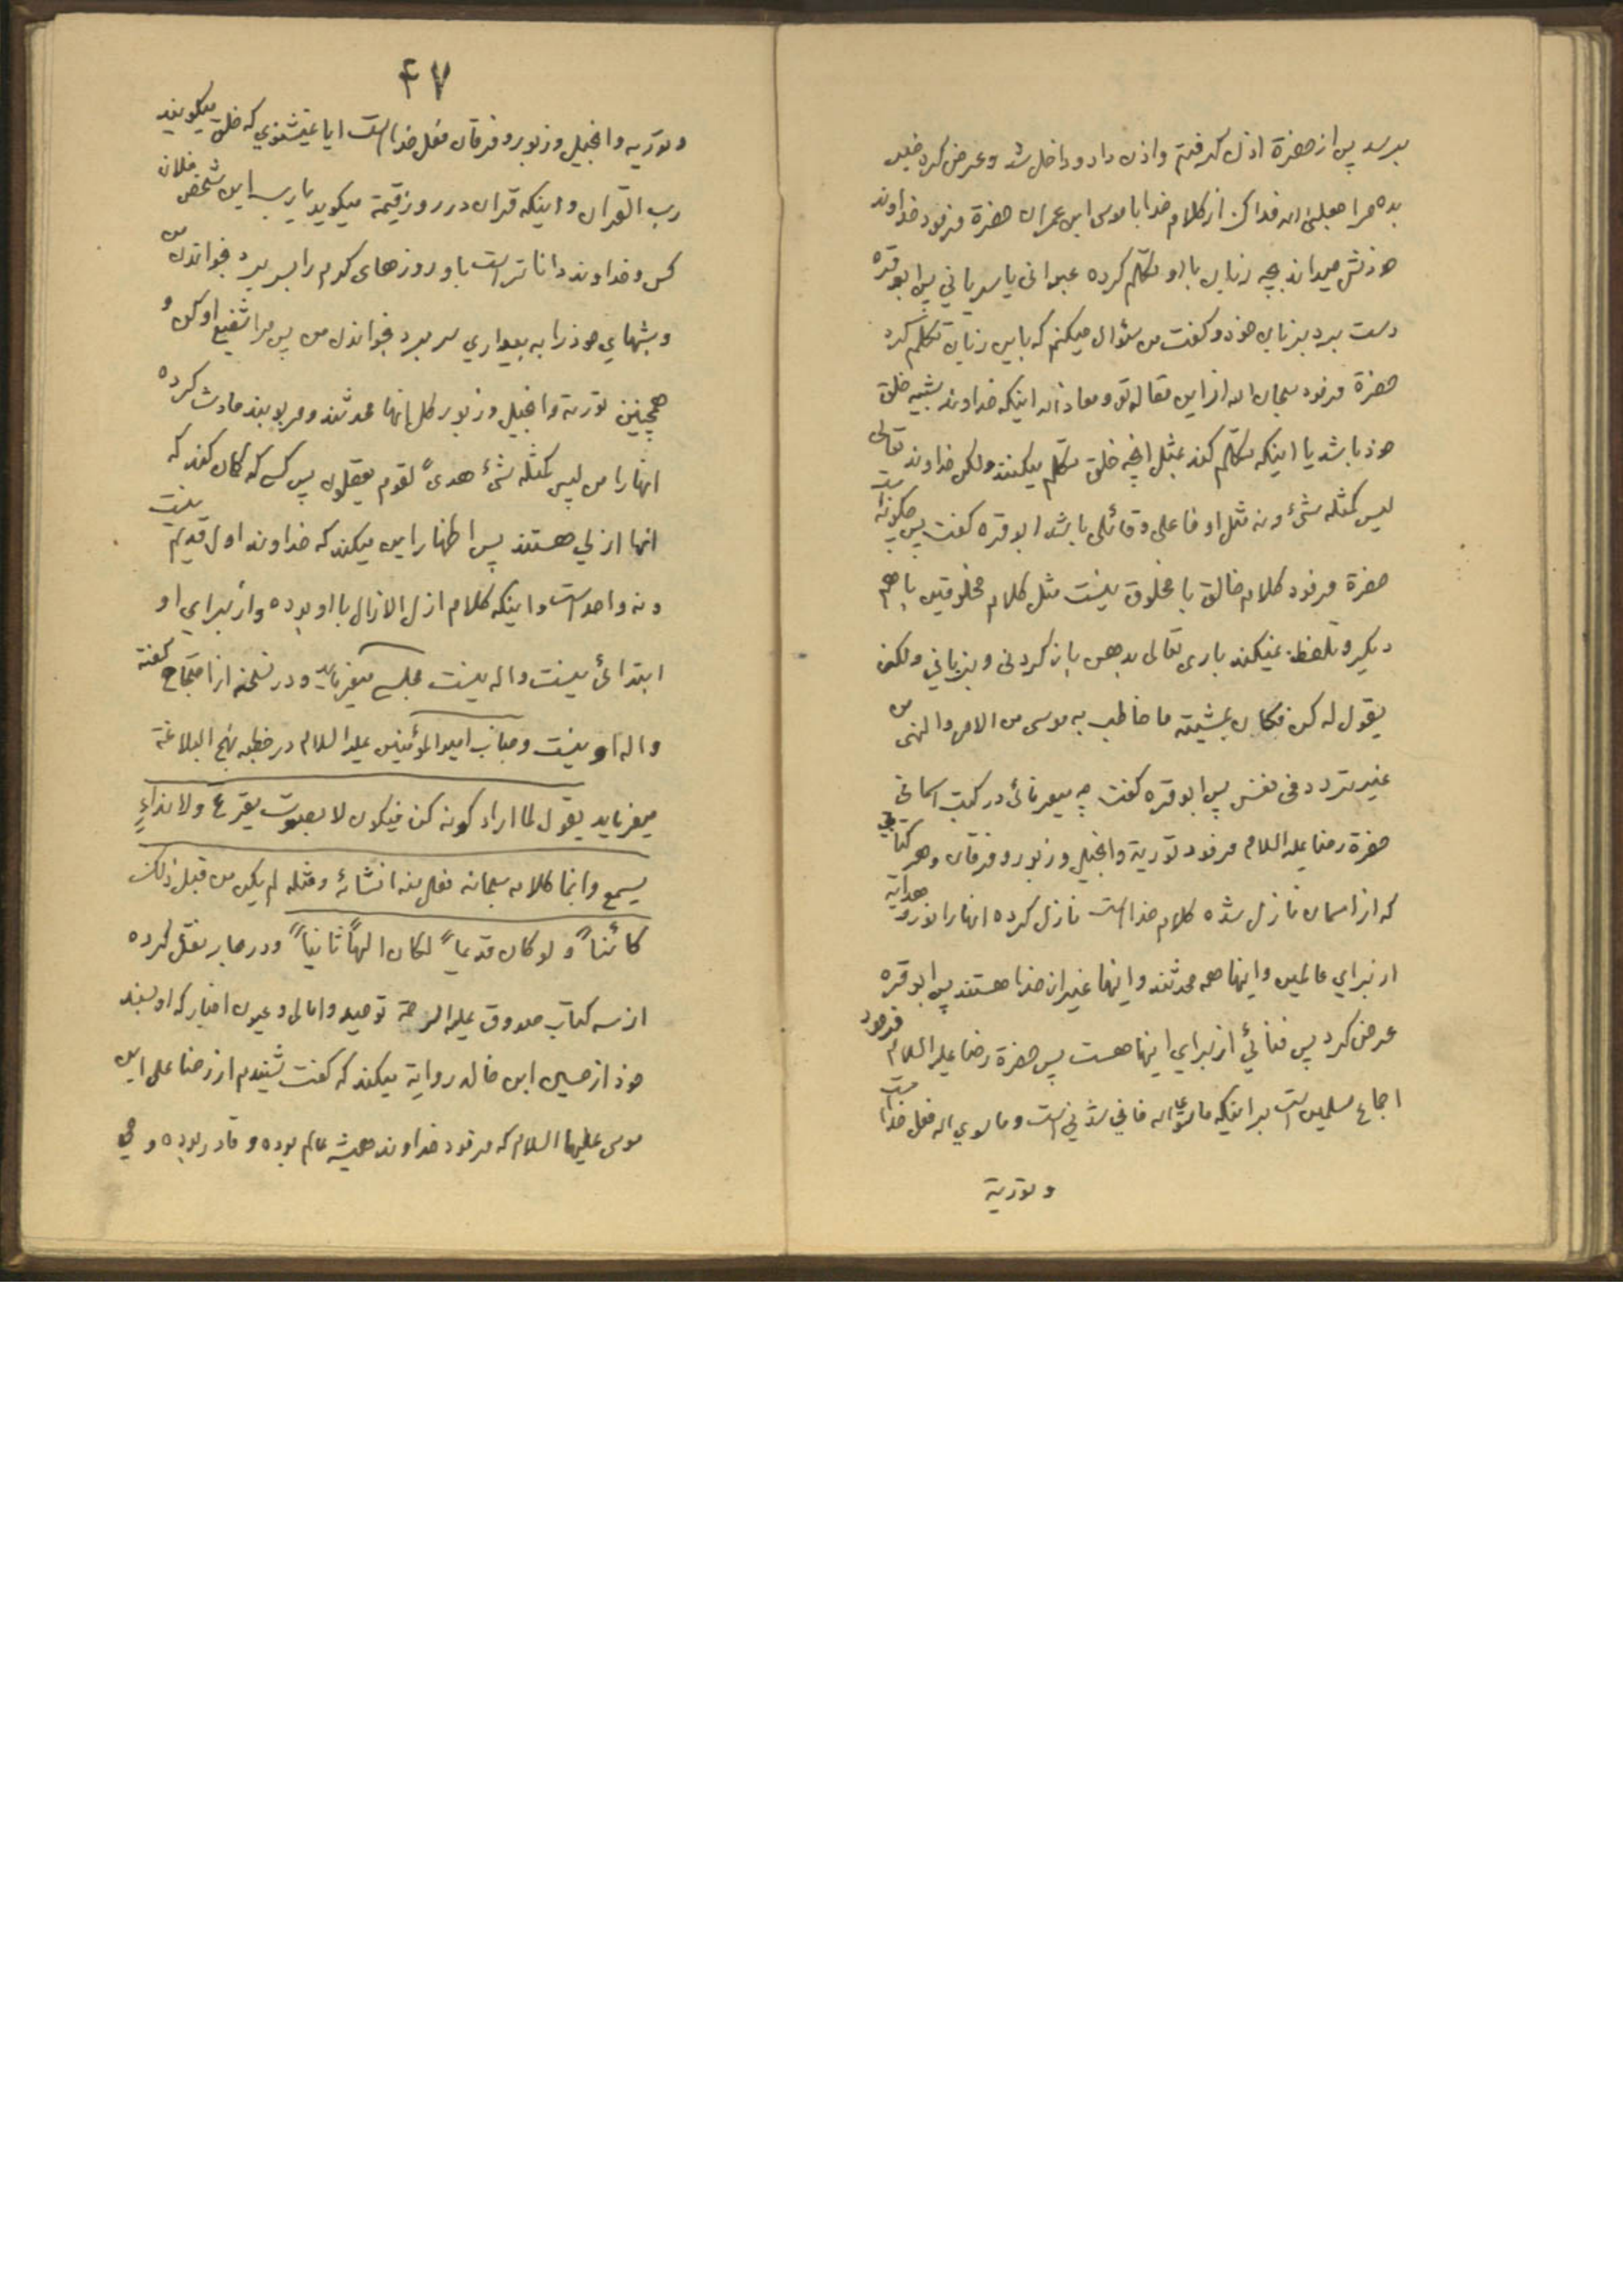 بپرسد پس از حضرة اذن گرفتم واذن داد وداخل شد وعرض کرد خبر
بده مرا جعلنی الله فداک از کلام خدا با موسی ابن عمران حضرة فرمود خداوند
خودش میداند بچه زبان با او تکلّم کرده عبرانی یا سریانی پس ابو قره
دست برد بزبان خود وگفت من سئوال میکنم که باین زبان تکلّم کرد
حضرة فرمود سبحان الله از این مقاله تو ومعاذ الله اینکه خداوند شبیه خلق
خود باشد یا اینکه تکلّم کند بمثل انچه خلق تکلم میکنند ولکن خداوند تعالی
لیس کمثله شئ ونه مثل او فاعلی وقائلی باشد ابو قره گفت پس چگونه است
حضرة فرمود کلام خالق با مخلوق نیست مثل کلام مخلوقین با هم
دیگر وتلفظ نمیکند باری تعالی بدهن باز کردنی وبزبانی ولکن
یقول له کن فکان بمشیته ما خاطب به موسی من الامر والنهی من
غیر تردد فی نفس پس ابو قره گفت چه میفرمائی در کتب اسمانی
حضرة رضا علیه السلام فرمود توریة وانجیل وزبور وفرقان وهر کتابی
که از اسمان نازل شده کلام خداست نازل کرده انها را نور وهدایة
از برای عالمین واینها همه محدثند واینها غیر از خدا هستند پس ابو قره
عرض کرد پس فنائی از برای اینها هست پس حضرة رضا علیه السلام فرمود
اجماع مسلمین است بر اینکه ما سوی الله فانی شدنی است وما سوی الله فعل خداست
وتوریة
۴۷
وتوریه وانجیل وزبور وفرقان فعل خداست ایا نمیشنوی که خلق میگویند
رب القران واینکه قران در روز قیمة میگوید یارب این شخص فلان
کس وخداوند داناتر است باو روزهای گرم را بسر برد بخواندن من
وشبهای خود را به بیداری سر برد بخواندن من پس مرا شفیع او کن و
همچنین توریة وانجیل وزبور کل اینها محدثند ومربوبند حادث کرده
انها را من لیس کمثله شئ هدیً لقوم یعقلون پس کسی که گمان کند که
انها ازلی هستند پس اظهار این میکند که خداوند اول قدیم نیست
ونه واحد است واینکه کلام ازل الازال با او بوده واز برای او
ابتدائی نیست واله نیست مجلسی میفرماید ودر نسخه از احتجاج گفته
واله او نیست وجناب امیر المؤمنین علیه السلام در خطبه نهج البلاغة
میفرماید یقول لما اراد کونه کن فیکون لا بصوت یقرع ولا نداءٍ
یسمع وانما کلامه سبحانه فعل منه انشائه ومثله لم یکن من قبل ذلک
کائناً ولو کان قدیماً لکان الهاً ثانیاً ودر بحار نقل کرده
از سه کتاب صدوق علیه الرحمة توحید وامالی وعیون اخبار که او بسند
خود از حسین ابن خالد روایة میکند که گفت شنیدم از رضا علی ابن
موسی علیهما السلام که فرمود خداوند همیشه عالم بوده وقادر بوده وحی